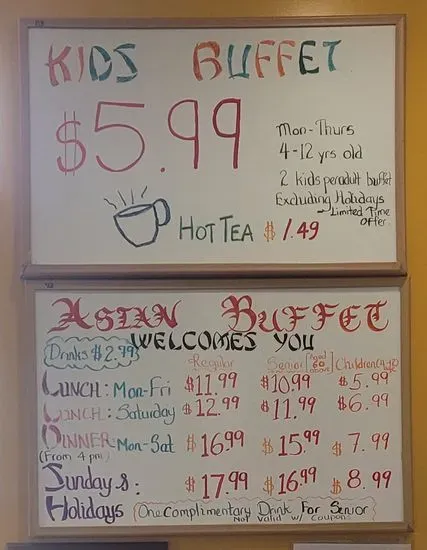 KIDS BUFFET
$5.99
Mon-Thurs
4-12 yrs old
2 kids per adult buffet
Excluding Holidays
~ Limited Time
Offer.
HOT TEA $1.49
ASIAN BUFFET
WELCOMES YOU
Drinks $2.99
Regular Senior [Aged 60 above] Children
LUNCH: Mon-Fri $11.99 $10.99 $5.99
LUNCH: Saturday $12.99 $11.99 $6.99
DINNER: Mon-Sat $16.99 $15.99 $7.99
(From 4 pm)
Sunday &: $17.99 $16.99 $8.99
Holidays (One Complimentary Drink For Senior
Not Valid w/ Coupons